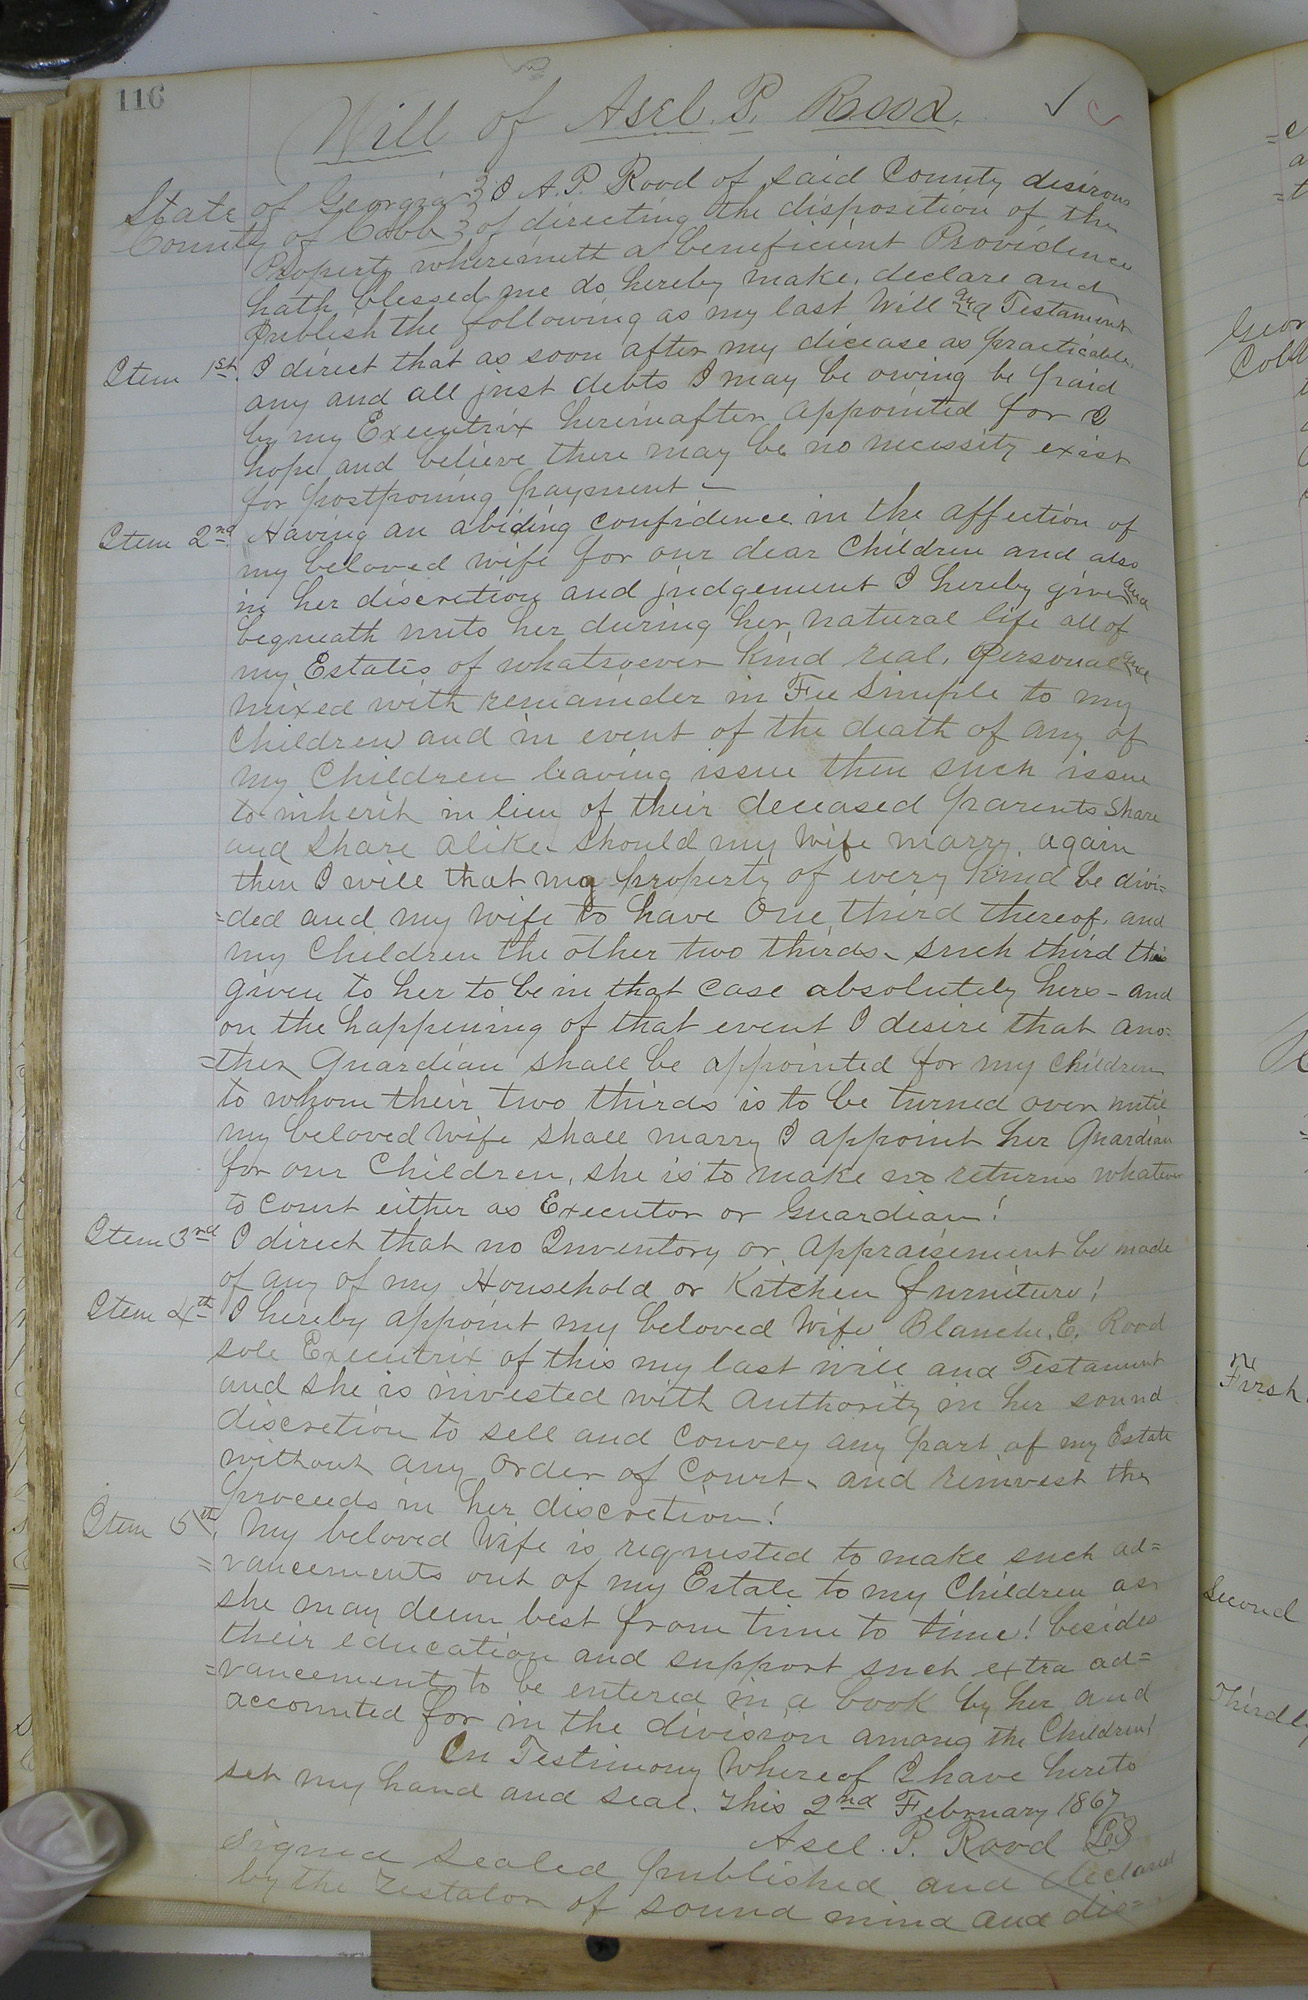 116
Will of Asel. P. Rood.
State of Georgia } I A. P. Rood of said County desirous
County of Cobb } of directing the disposition of the
Property wherewith a beneficient Providence
hath blessed me do hereby make, declare and
Publish the following as my last Will and Testament
Item 1st. I direct that as soon after my dicease as practicable
any and all just debts I may be owing be paid
by my Executrix hereinafter appointed for I
hope and believe there may be no necessity exist
for postponing payment –
Item 2nd Having an abiding confidence in the affection of
my beloved wife for our dear Children and also
in her discretion and judgement I hereby give and
bequeath unto her during her natural life all of
my Estates of whatsoever kind real, Personal and
mixed with remainder in Fee Simple to my
Children and in event of the death of any of
my Children leaving issue then such issue
to inherit in lieu of their deceased parents share
and share alike – should my Wife marry again
then I will that my property of every kind be divi=
=ded and my wife to have One third thereof. and
my Children the other two thirds – such third this
given to her to be in that case absolutely hers – and
on the happening of that event I desire that ano=
=ther Guardian shall be appointed for my children
to whom their two thirds is to be turned over until
my beloved wife shall marry I appoint her Guardian
for our Children, she is to make no returns whatever
to court either as Executor or Guardian!
Item 3rd I direct that no Inventory or appraisement be made
of any of my Household or Kitchen furniture!
Item 4th I hereby appoint my beloved Wife Blanche. E. Rood
sole Executrix of this my last will and Testament
and she is invested with authority in her sound
discretion to sell and convey any part of my Estate
without any order of Court – and reinvest the
proceeds in her discretion!
Item 5th. My beloved Wife is requested to make such ad=
=vancements out of my Estate to my Children as
she may deem best from time to time! besides
their education and support such extra ad=
=vancements to be entered in a book by her and
accounted for in the division among the Children!
In Testimony Whereof I have hereto
set my hand and seal. This 2nd February 1867
Asel. P. Rood LS
Signed sealed published and declared
by the Testator of sound mind and dis=
Geor
Cobb
First
Second
Thirdly